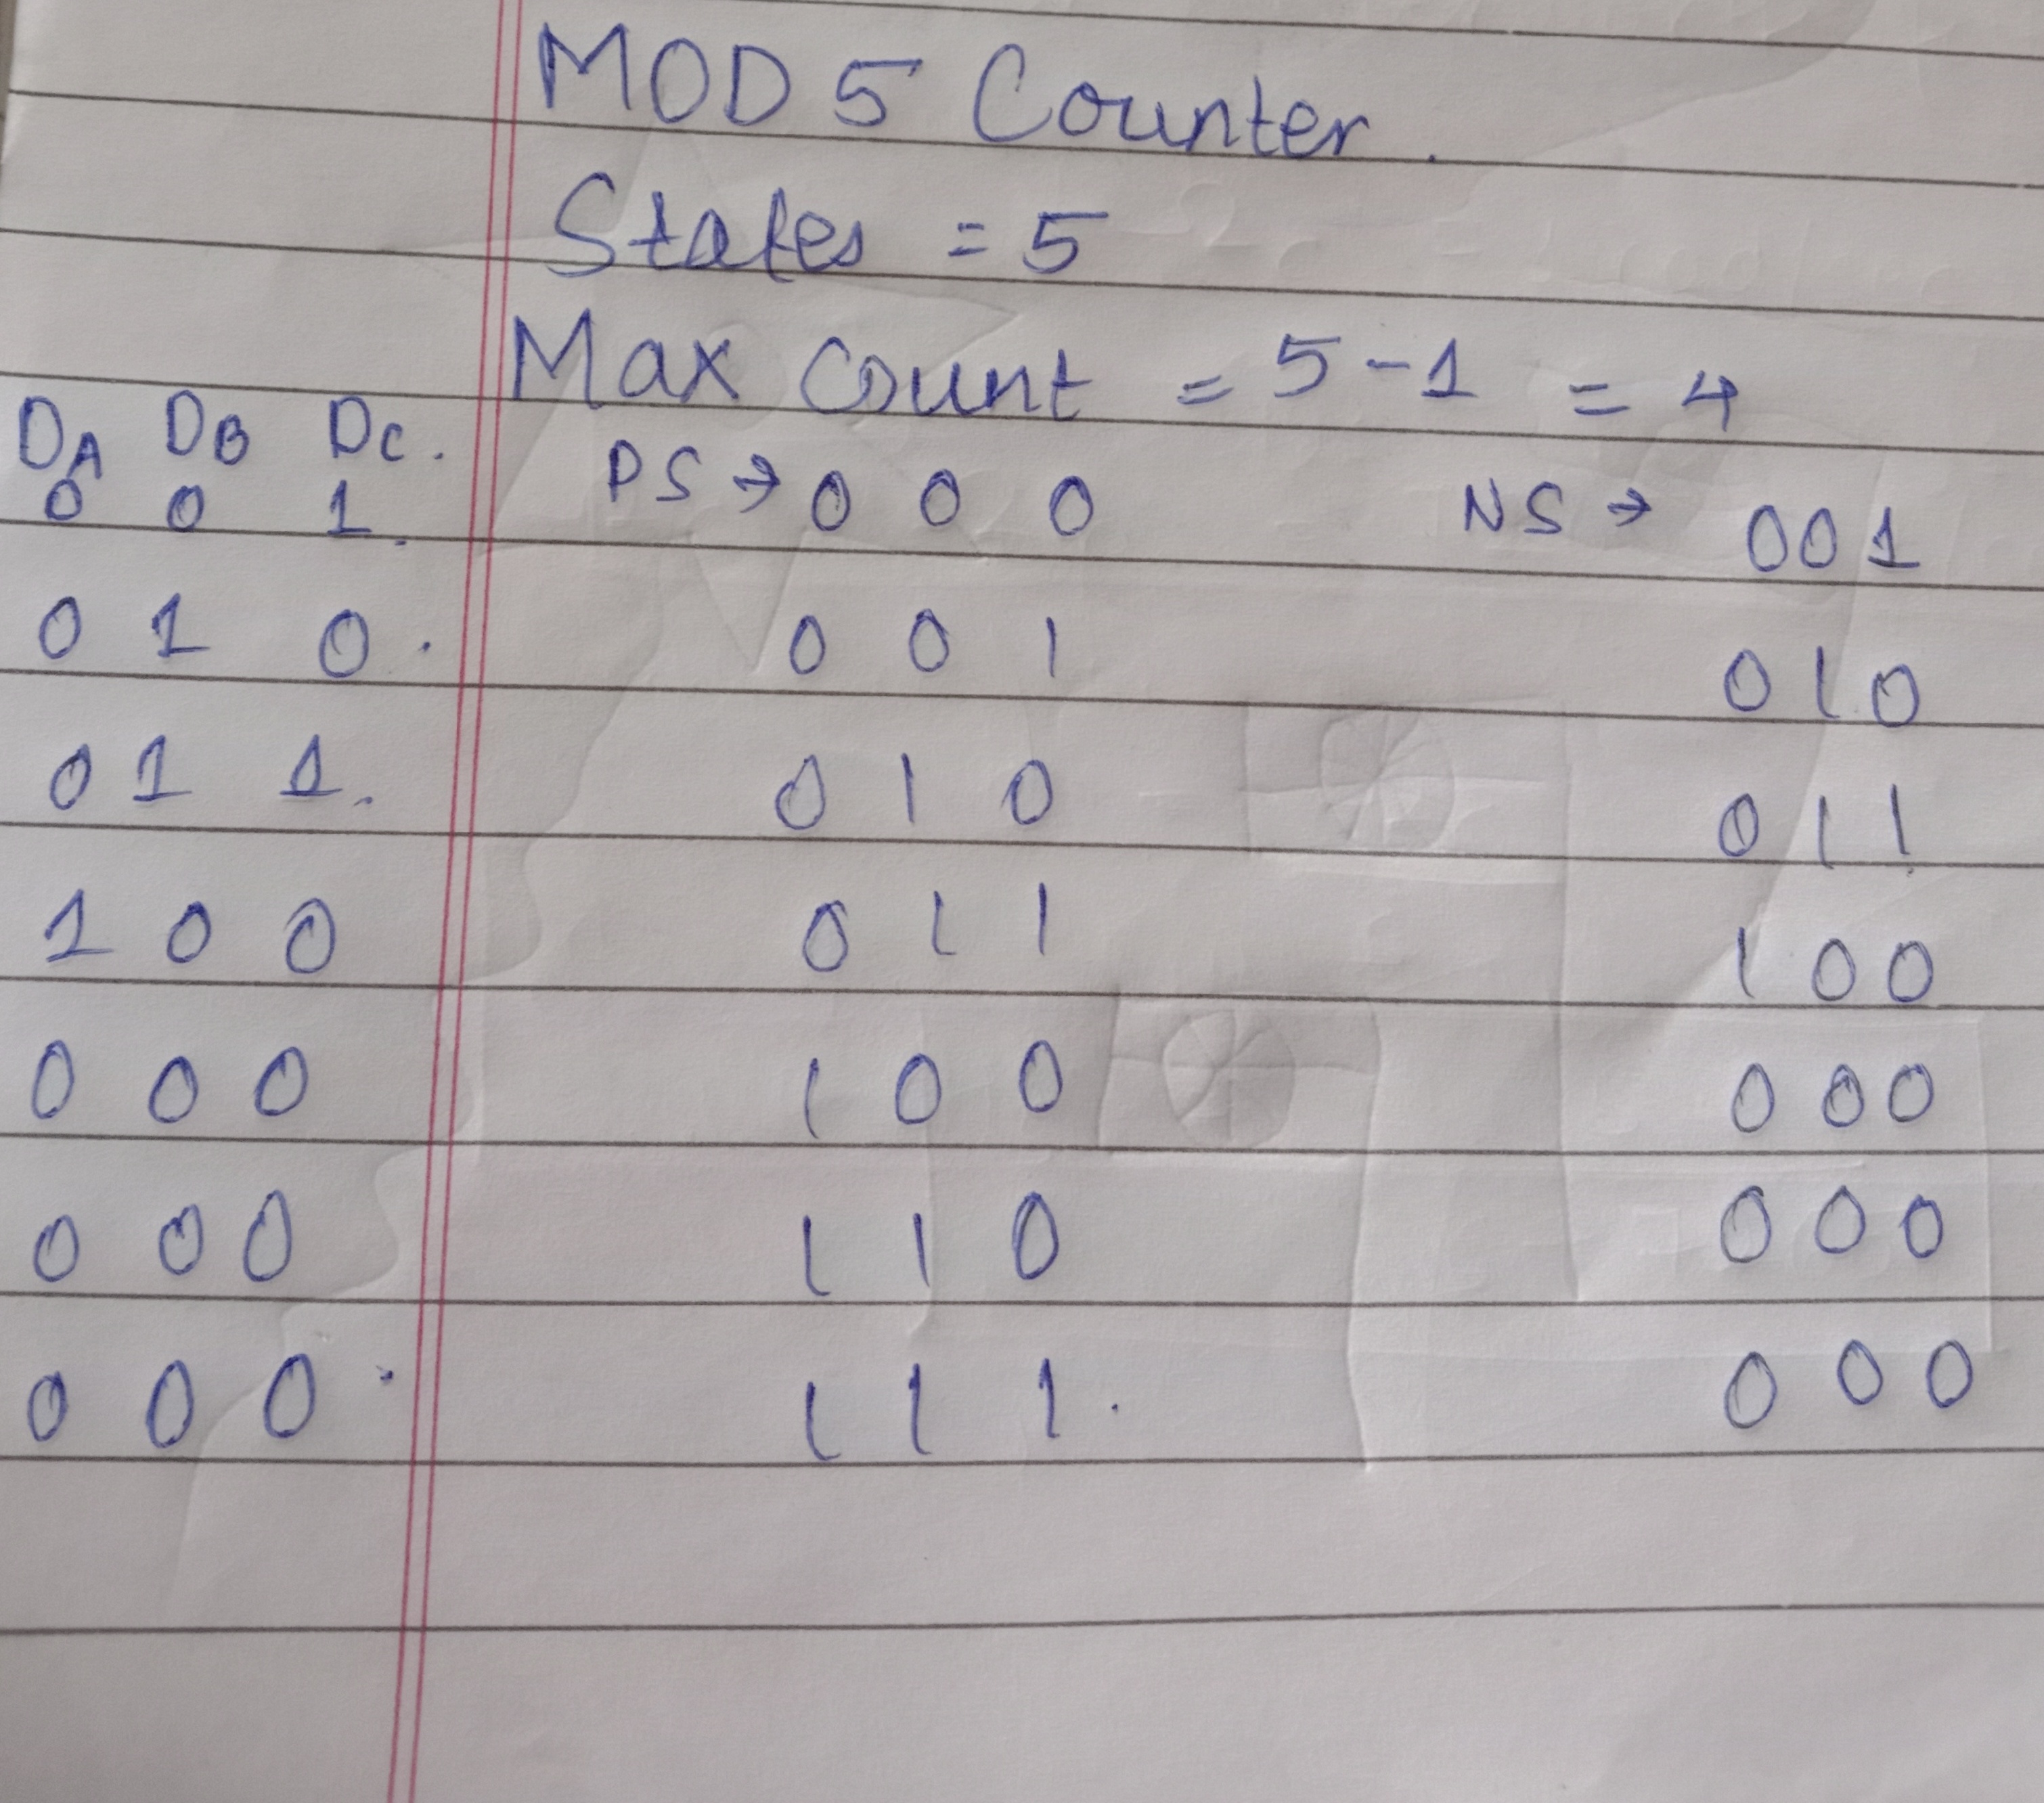 MOD 5 Counter.
States = 5
Max Count = 5 - 1 = 4
DA DB DC. PS → 0 0 0 NS → 001
0 0 1.
0 1 0. 0 0 1 010
0 1 1. 0 1 0 011
1 0 0 0 1 1 100
0 0 0 1 0 0 000
0 0 0 1 1 0 000
0 0 0. 1 1 1. 000